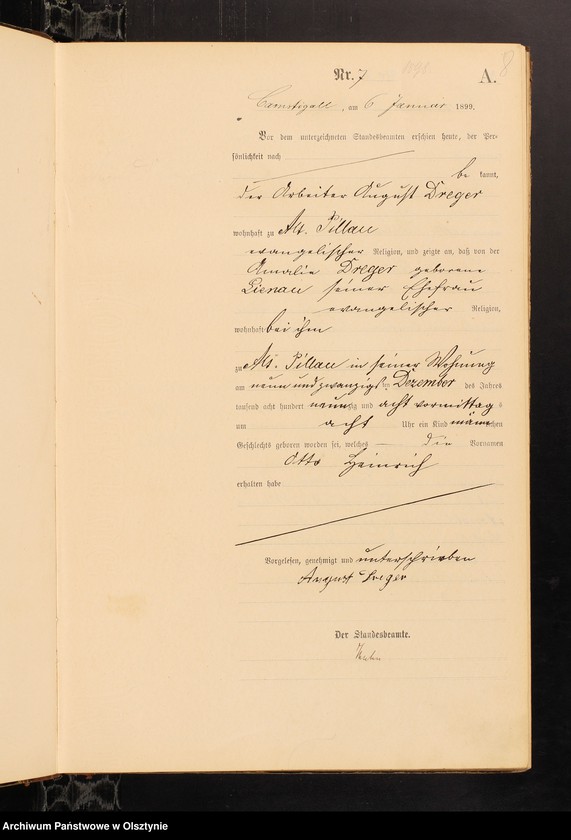 Nr. 7
A.
8
Camstigall, am 6 Januar 1899.
Vor dem unterzeichneten Standesbeamten erschien heute, der Per-
sönlichkeit nach
be kannt,
der Arbeiter August Dreger
wohnhaft zu Alt. Pillau
evangelischer Religion, und zeigte an, daß von der
Amalie Dreger geborene
Lienau seiner Ehefrau
evangelischer Religion,
wohnhaft bei ihm
zu Alt. Pillau in seiner Wohnung
am neun und zwanzigsten Dezember des Jahres
tausend acht hundert neunzig und acht vormittags
um acht Uhr ein Kind männlichen
Geschlechts geboren worden sei, welches die Vornamen
Otto Heinrich
erhalten habe
Vorgelesen, genehmigt und unterschrieben
August Dreger
Der Standesbeamte.
Archiwum Państwowe w Olsztynie